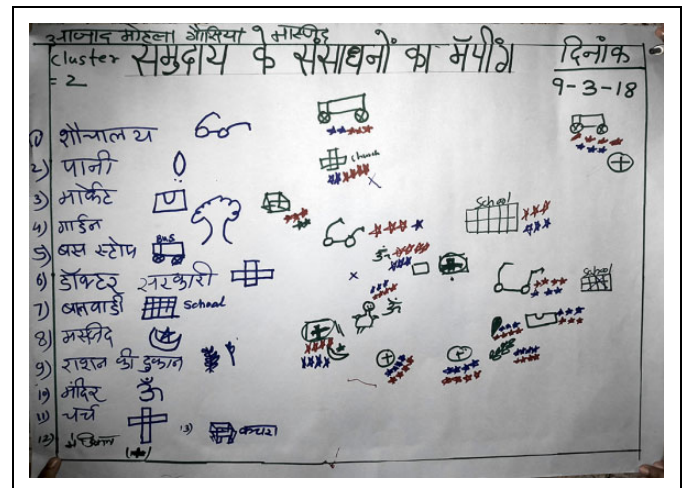 आजाद मोहला गौसिया मास्जिद
cluster = 2
समुदाय के संसाधनों का मॅपींग
दिनांक
9-3-18
1) शौचालय
2) पानी
3) मार्केट
4) गार्डन
5) बस स्टोप BUS
6) डॉक्टर सरकारी
7) बालवाडी School
8) मस्जीद
9) राशन की दुकान
10) मंदिर ॐ
11) चर्च
12)
13) कचरा
church
School
ॐ
School
ॐ